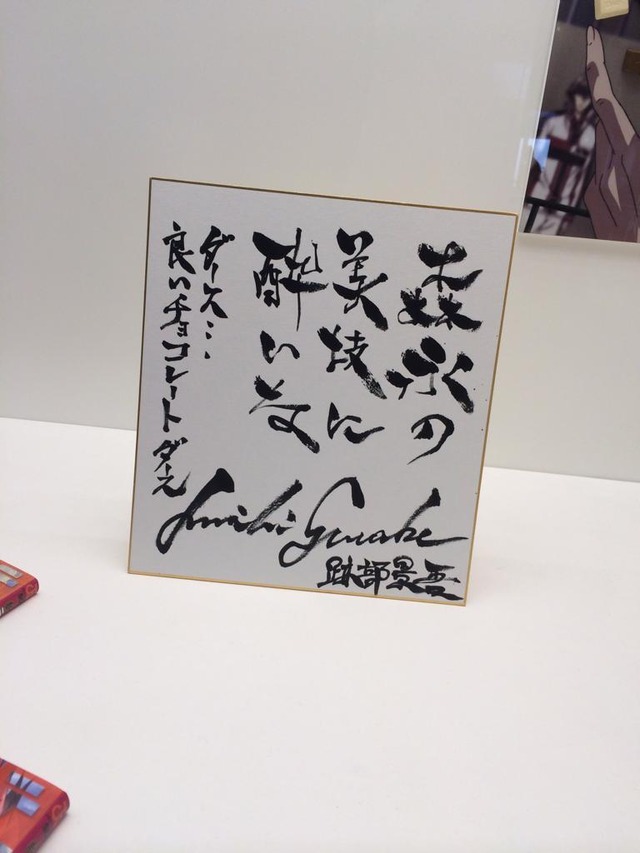 森永の
美技に
酔いな
ダース…
良いチョコレートダース
Junichi Suwabe
跡部景吾